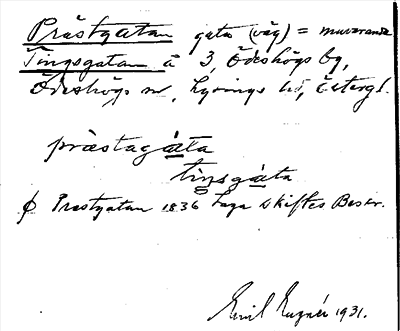 Prästgatan gata (väg) = nuvarande
Tingsgatan å 3, Ödeshögs by,
Ödeshögs sn, Lysings hd, Östergl.
prästagáta
tiŋsgáta
Prestgatan 1836 Laga skiftes Beskr.
Emil 1931.